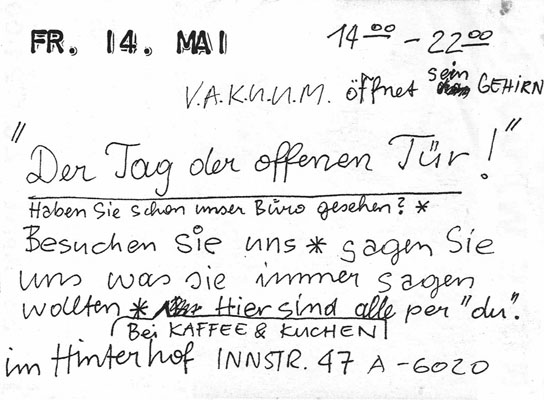 FR. 14. MAI 14⁰⁰ – 22⁰⁰
V.A.K.U.U.M. öffnet sein GEHIRN
"Der Tag der offenen Tür!"
Haben Sie schon unser Büro gesehen? *
Besuchen Sie uns * sagen Sie
uns was sie immer sagen
wollten * Hier sind alle per "du".
Bei KAFFEE & KUCHEN
im Hinterhof INNSTR. 47 A-6020